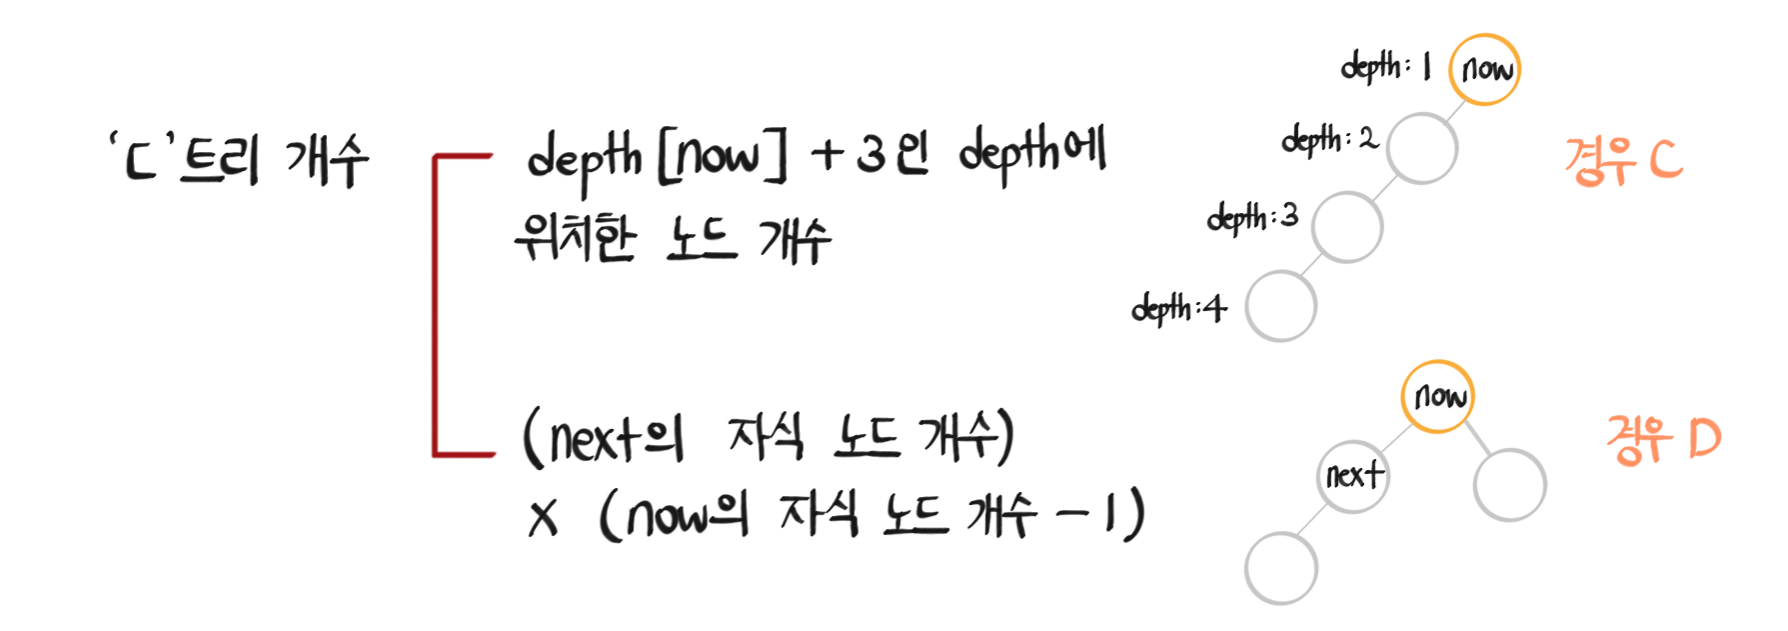 'ㄷ'트리 개수
depth[now] + 3인 depth에
위치한 노드 개수
(next의 자식 노드 개수)
x (now의 자식 노드 개수 - 1)
depth: 1
now
depth:2
depth:3
depth:4
경우 C
now
next
경우 D